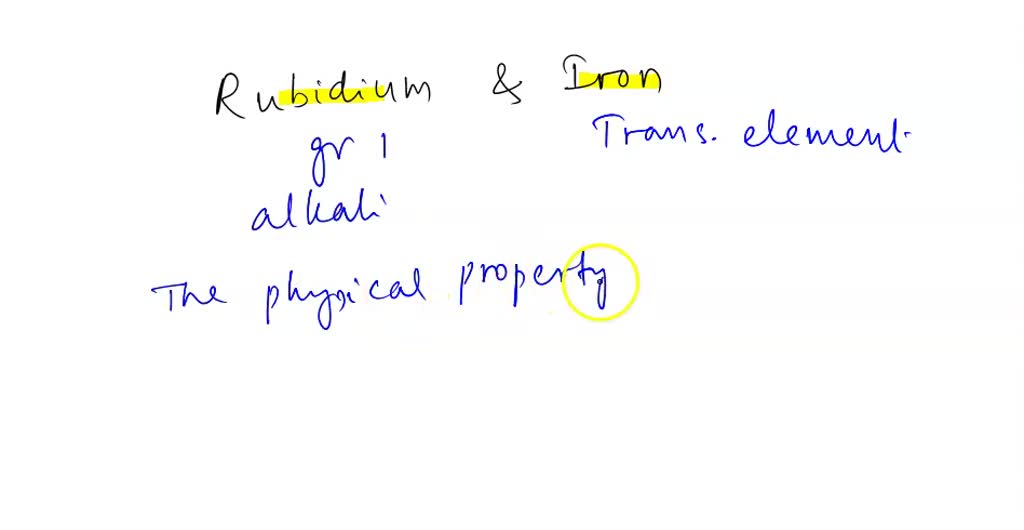 Rubidium & Iron
gr 1 Trans. element.
alkali
The physical property